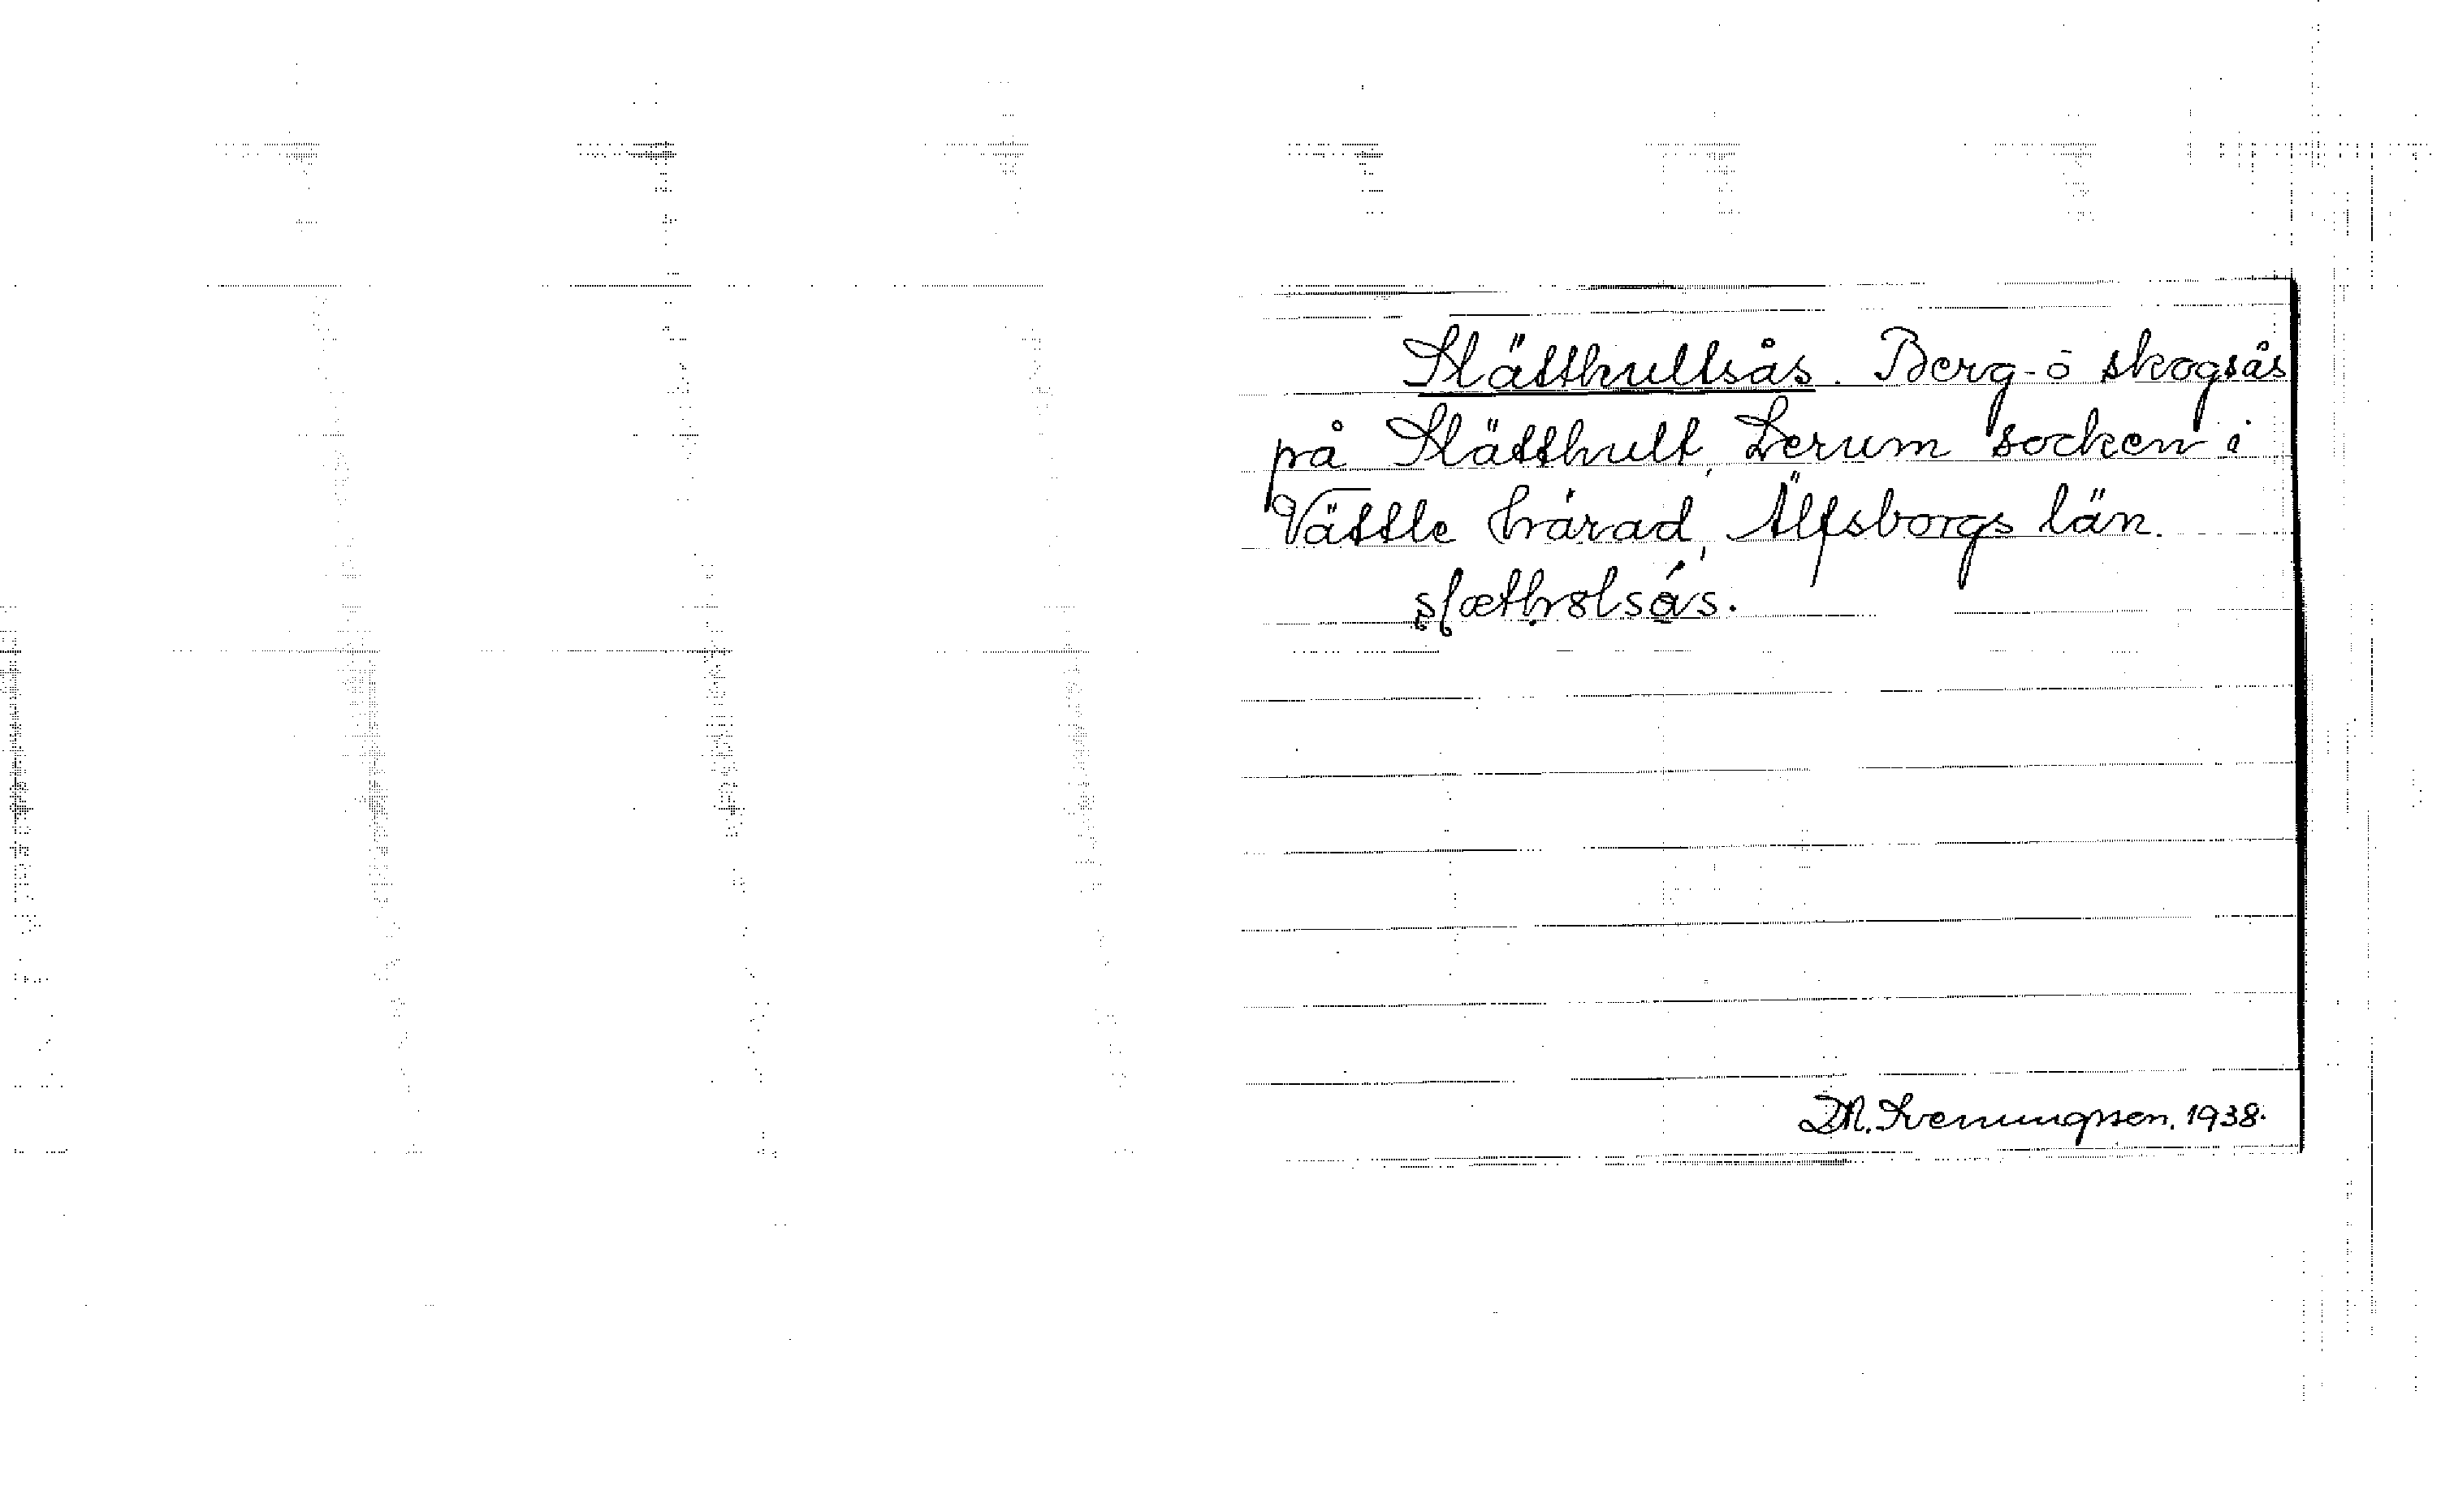 Slätthultsås. Berg- o skogsås
på Slätthult, Lerum socken i
Vättle härad, Älfsborgs län.
slætholsås.
D.M. Svenungsson. 1938.